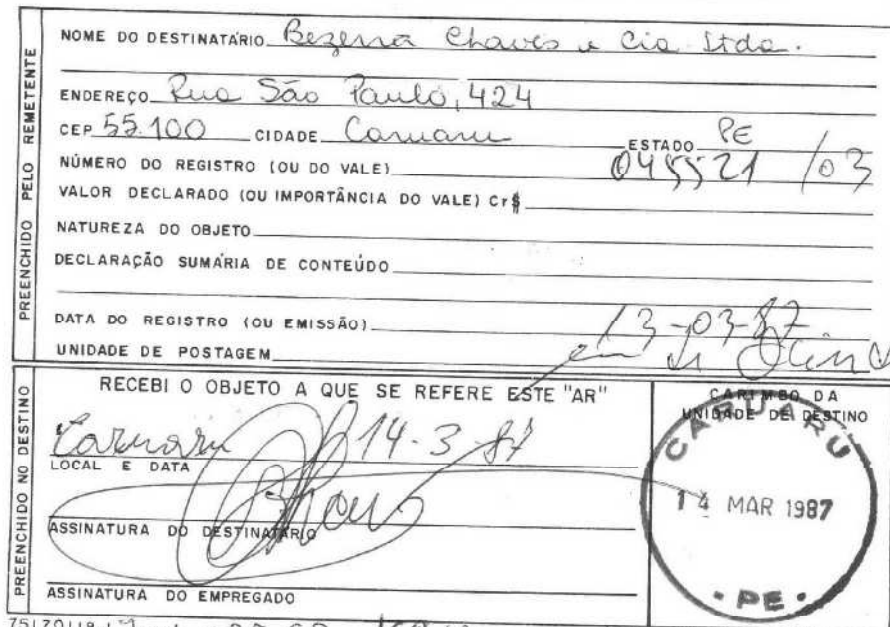 PREENCHIDO PELO REMETENTE
NOME DO DESTINATÁRIO Bezerra Chaves e Cia Ltda.
ENDEREÇO Rua São Paulo, 424
CEP 55.100 CIDADE Caruaru ESTADO PE
NÚMERO DO REGISTRO (OU DO VALE) 045521/03
VALOR DECLARADO (OU IMPORTÂNCIA DO VALE) Cr$
NATUREZA DO OBJETO
DECLARAÇÃO SUMÁRIA DE CONTEÚDO
DATA DO REGISTRO (OU EMISSÃO) 13-03-87
UNIDADE DE POSTAGEM
PREENCHIDO NO DESTINO
RECEBI O OBJETO A QUE SE REFERE ESTE "AR"
Caruaru 14-3-87
LOCAL E DATA
ASSINATURA DO DESTINATÁRIO
ASSINATURA DO EMPREGADO
CARIMBO DA
UNIDADE DE DESTINO
CARUARU
14 MAR 1987
PE